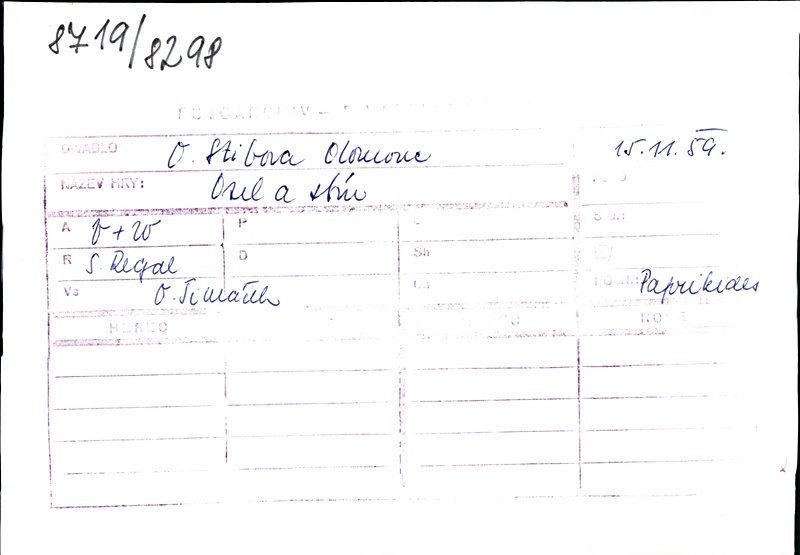 8719/8298
FOTOARCHIV –
DIVADLO O. Stibora Olomouc 15.11.59.
NÁZEV HRY: Osel a stín
A V+W P
R S. Regal D Sh
Vs O. Šimáček Paprikides
HEREC ROLE